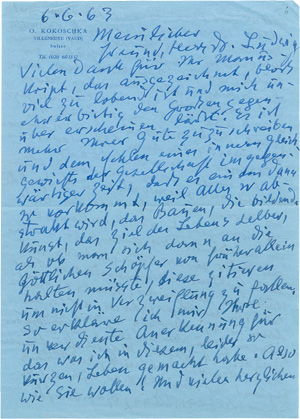 6.6.63
O. KOKOSCHKA
VILLENEUVE (VAUD)
Mein lieber
Freund, Herr D. Lindwig
Vielen Dank für Ihr Manus-
kript, das ausgezeichnet, bloss
viel zu lobend ist und mich un-
ehrerbietig den Grossen gegen-
über erscheinen lässt. Es ist
mehr Ihrer Güte zuzuschreiben
und dem Fehlen eines inneren Gleich-
gewichts der Gesellschaft in gegen-
wärtiger Zeit, dass es einem dann
so vorkommt, weil alles so ab-
strakt wird, das Bauen, die bildende
Kunst, das Ziel des Lebens selber,
als ob man sich dann an die
Göttlichen Schöpfer von früher allein
halten müsste, diese zitieren
um nicht in Verzweiflung zu fallen.
So erkläre ich mir Ihre
unverdiente Anerkennung für
das was ich in diesem, leider so
kurzen, Leben gemacht habe. Also
wie Sie wollen! Und vielen herzlichen